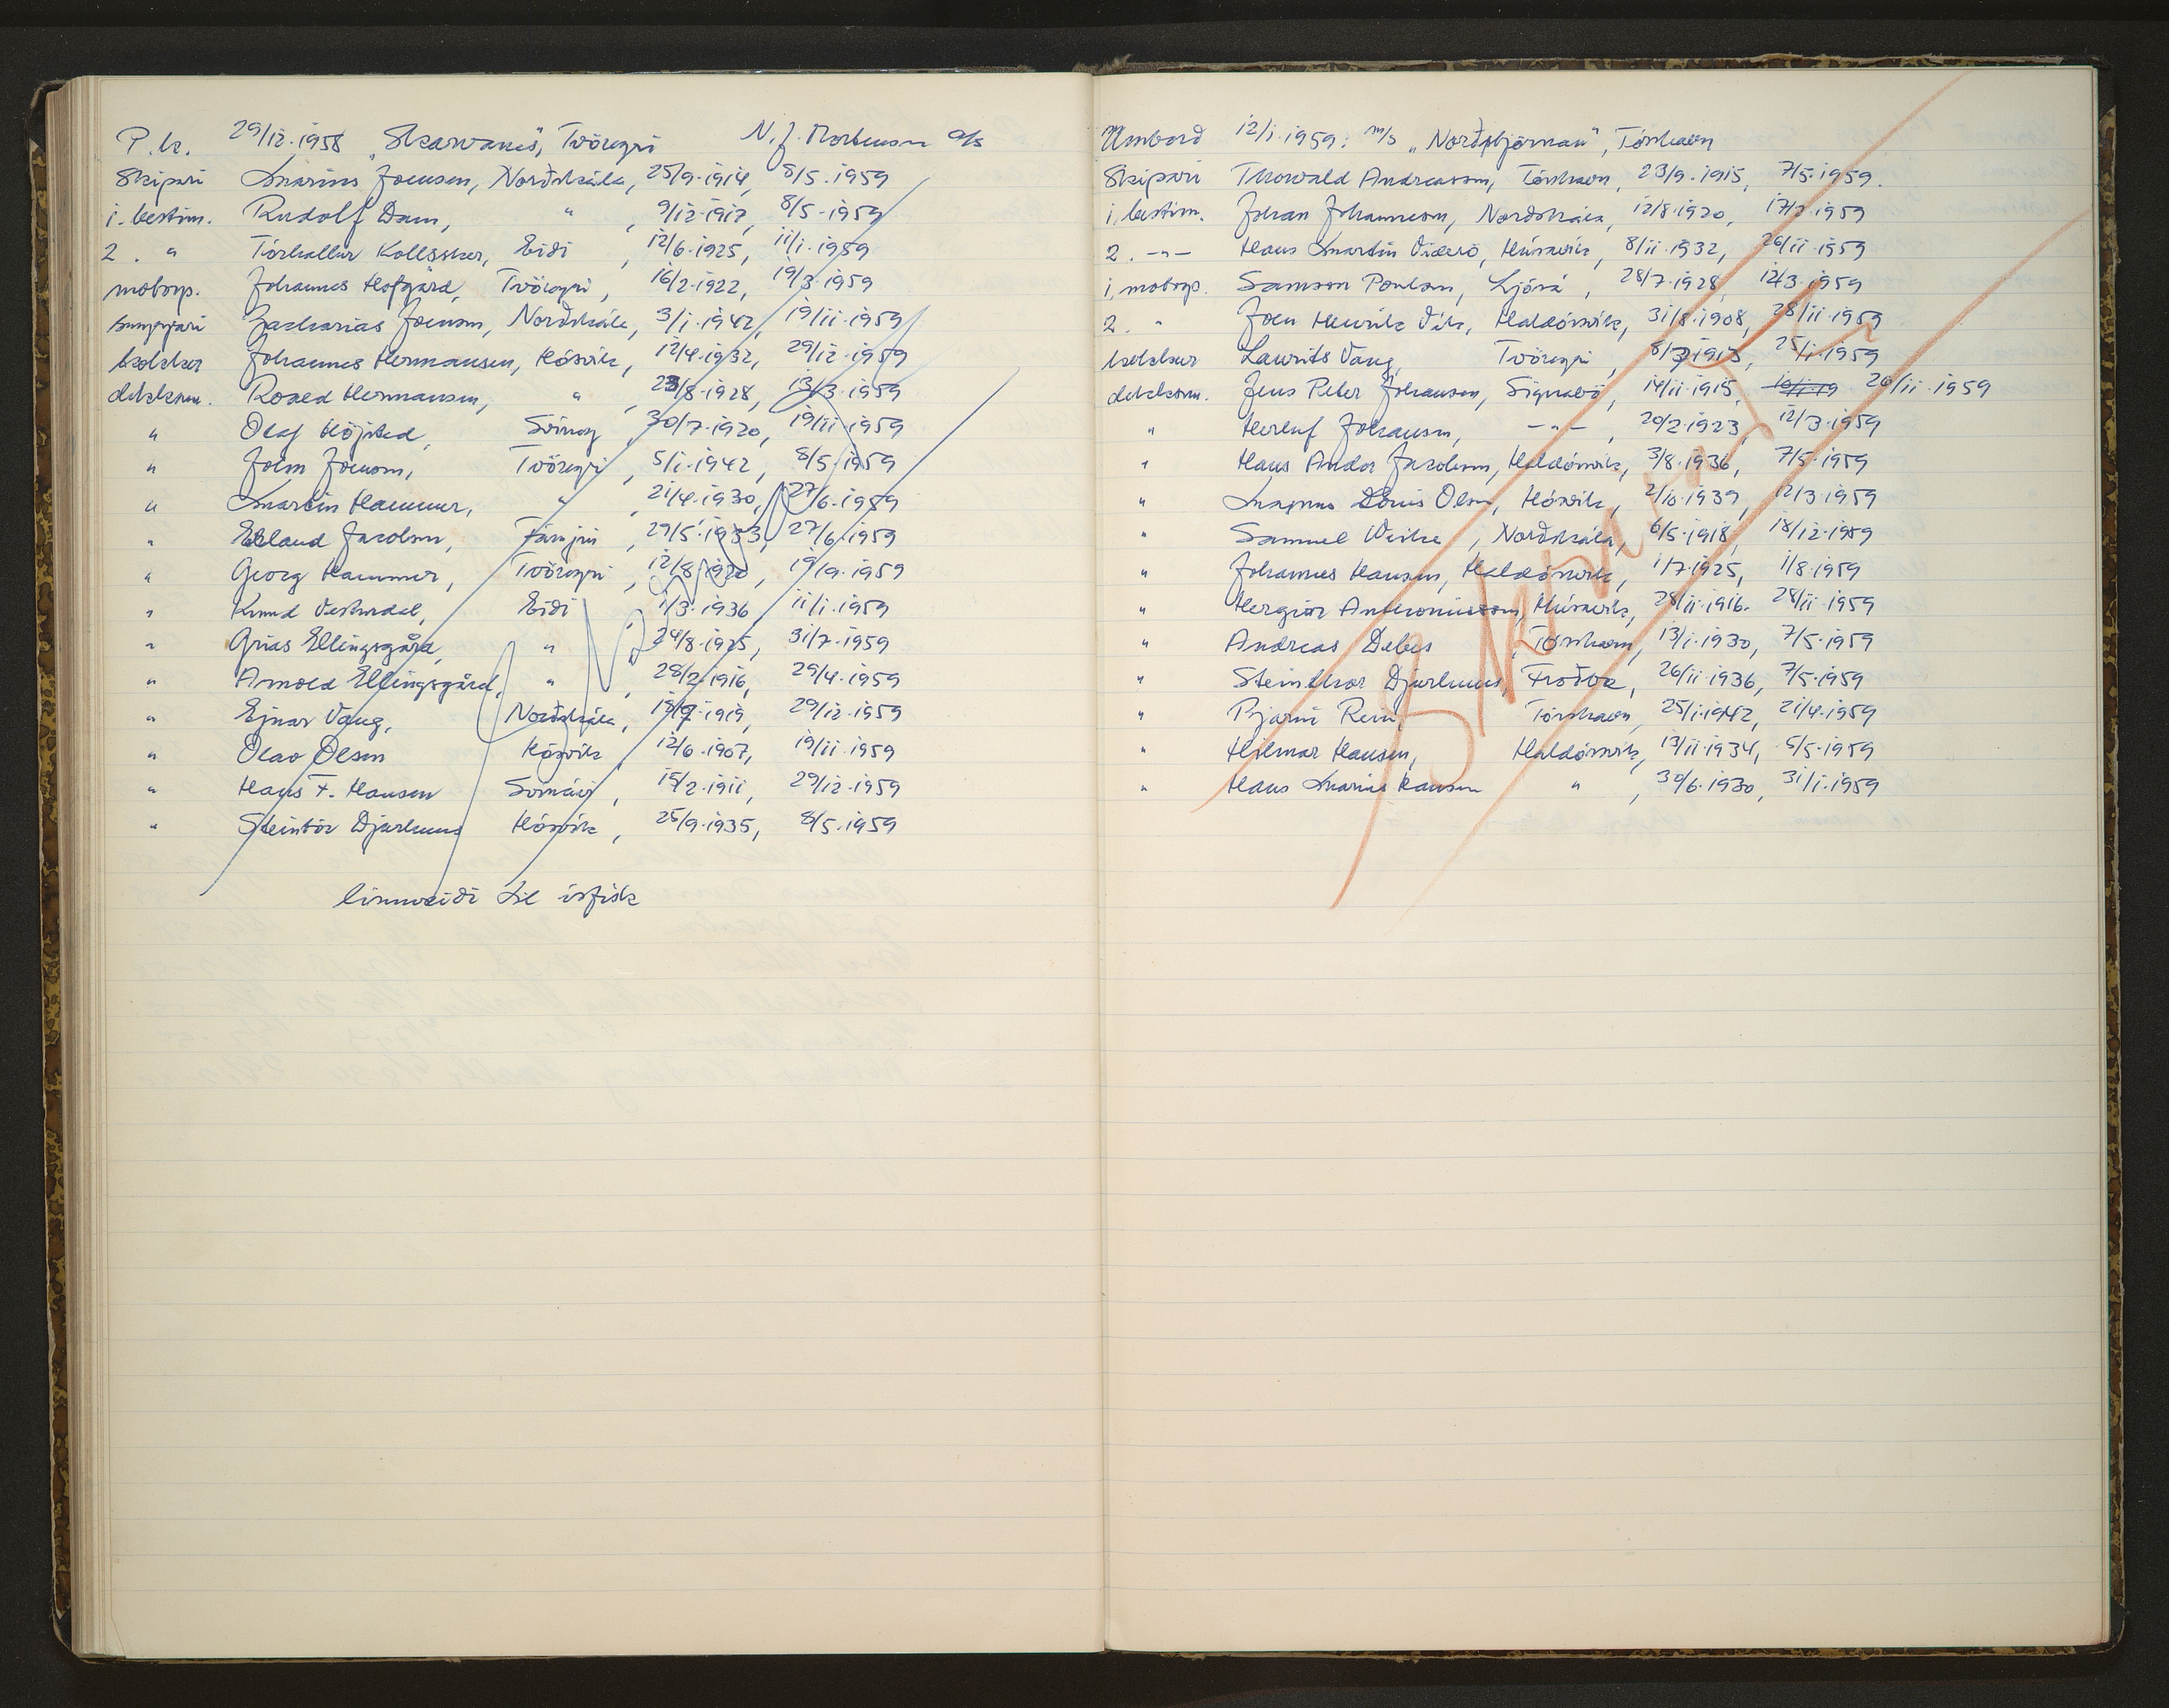 P.k. 29/12.1958 "Skarvanes", Tvöroyri N. J. Mortensen P/f
Skipari Marius Joensen, Norðskála, 25/9.1914, 8/5.1959
1. bestm. Rudolf Dam, " , 9/12.1917, 8/5.1959
2. " Tórhallur Kollsker, Eiði , 12/6.1925, 11/1.1959
motorp. Johannes Hofgárd, Tvöroyri, 16/2.1922, 19/3.1959
Zacharias Joensen, Norðskála, 3/1.1942, 19/11.1959
kokkur Johannes Hermansen, Hósvík, 12/4.1932, 29/12.1959
dekksm. Roald Hermansen, " , 23/8.1928, 13/3.1959
" Olaf Höjsted, 30/7.1920, 19/11.1959
" John Joensen, Tvöroyri, 5/1.1942, 8/5.1959
" Martin Hammer, " , 21/4.1930, 27/6.1959
" Erland Jacobsen, Fámjin , 29/5.1933, 27/6.1959
" Georg Hammer, Tvöroyri , 12/8.1920, 19/9.1959
" Knud Vesturdal, Eiði 1/3.1936 11/1.1959
" Grias Ellingsgård, " , 24/8.1925, 31/7.1959
" Arnold Ellingsgård, " , 28/2.1916, 29/4.1959
" Ejnar Vang, Norðskála, 1919, 29/12.1959
" Olav Olsen Hósvík , 12/6.1907, 19/11.1959
" Hans F. Hansen , 15/2.1911, 29/12.1959
" Steintór Djurhuus Hósvík , 25/9.1935, 8/5.1959
línuveiði til ísfisk
Umborð 12/1.1959: m/s "Norðstjörnan", Tórshavn
Skipari Thorvald Andreassen, Tórshavn, 23/9.1915, 7/5.1959.
1. bestm. Johan Johannesen, Norðskála, 12/8.1920, 17/2.1959
2. -"- Hans Martin Viderö, Húsavík, 8/11.1932, 26/11.1959
1. motorp. Samson Poulsen, Ljósá , 28/7.1928, 12/3.1959
2. " Joen Henrik Vik, Haldórsvík, 31/8.1908, 28/11.1959
kokkur Laurits Vang, Tvöroyri , 1913, 25/1.1959
dekksm. Jens Peter Johansen, Signabö, 14/11.1915, 26/11.1959
" Herluf Johansen, -"- , 20/2.1923, 12/3.1959
" Hans Andor Jacobsen, Haldórsvík, 3/8.1936, 7/5.1959
" Magnus Dánis Olsen, Hósvík, 2/10.1939, 12/3.1959
" Samuel , Norðskála, 6/5.1918, 18/12.1959
" Johannes Hansen, Haldórsvík, 1/7.1925, 1/8.1959
" Hergeir Anthoniussen, Húsavík, 28/11.1916. 28/11.1959
" Andreas Debes , Tórshavn, 13/1.1930, 7/5.1959
" Steinthor Djurhuus, Froðba, 26/11.1936, 7/5.1959
" Bjarni Rein, Tórshavn, 25/1.1942, 21/4.1959
" Hilmar Hansen, Haldórsvík, 13/11.1934, 5/5.1959
" Hans Marius Hansen " , 30/6.1930, 31/1.1959